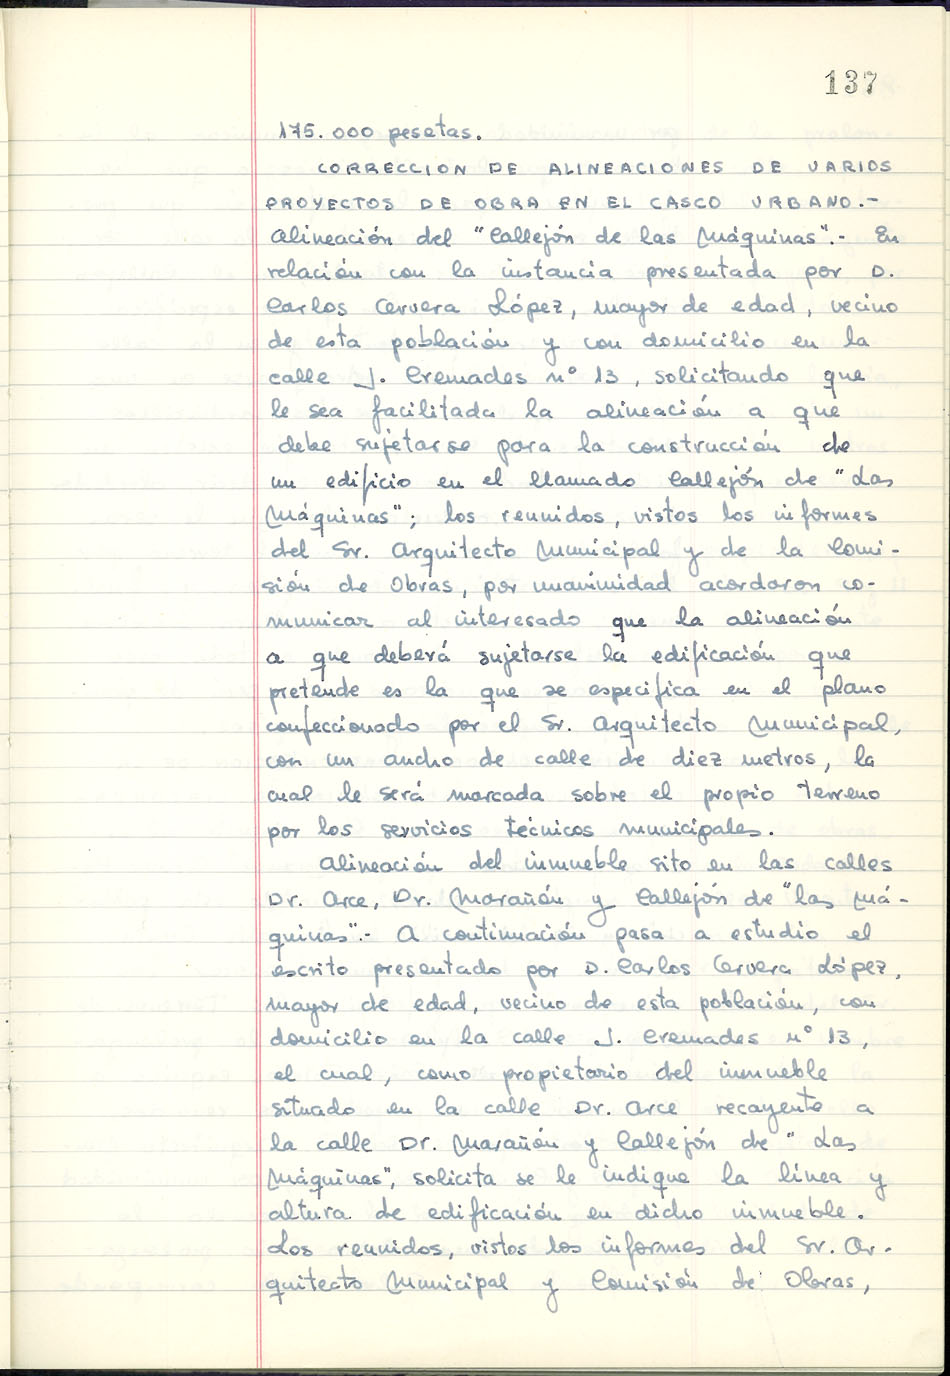 137
175.000 pesetas.
CORRECCION DE ALINEACIONES DE VARIOS
PROYECTOS DE OBRA EN EL CASCO URBANO.-
Alineación del "Callejón de las Máquinas".- En
relación con la instancia presentada por D.
Carlos Cervera López, mayor de edad, vecino
de esta población y con domicilio en la
calle J. Cremades nº 13, solicitando que
le sea facilitada la alineación a que
debe sujetarse para la construcción de
un edificio en el llamado Callejón de "Las
Máquinas"; los reunidos, vistos los informes
del Sr. Arquitecto Municipal y de la Comi-
sión de Obras, por unanimidad acordaron co-
municar al interesado que la alineación
a que deberá sujetarse la edificación que
pretende es la que se especifica en el plano
confeccionado por el Sr. Arquitecto Municipal,
con un ancho de calle de diez metros, la
cual le será marcada sobre el propio terreno
por los servicios técnicos municipales.
Alineación del inmueble sito en las calles
Dr. Arce, Dr. Marañón y Callejón de "las Má-
quinas".- A continuación pasa a estudio el
escrito presentado por D. Carlos Cervera López,
mayor de edad, vecino de esta población, con
domicilio en la calle J. Cremades nº 13,
el cual, como propietario del inmueble
situado en la calle Dr. Arce recayente a
la calle Dr. Marañón y Callejón de "Las
Máquinas", solicita se le indique la línea y
altura de edificación en dicho inmueble.
Los reunidos, vistos los informes del Sr. Ar-
quitecto Municipal y Comisión de Obras,